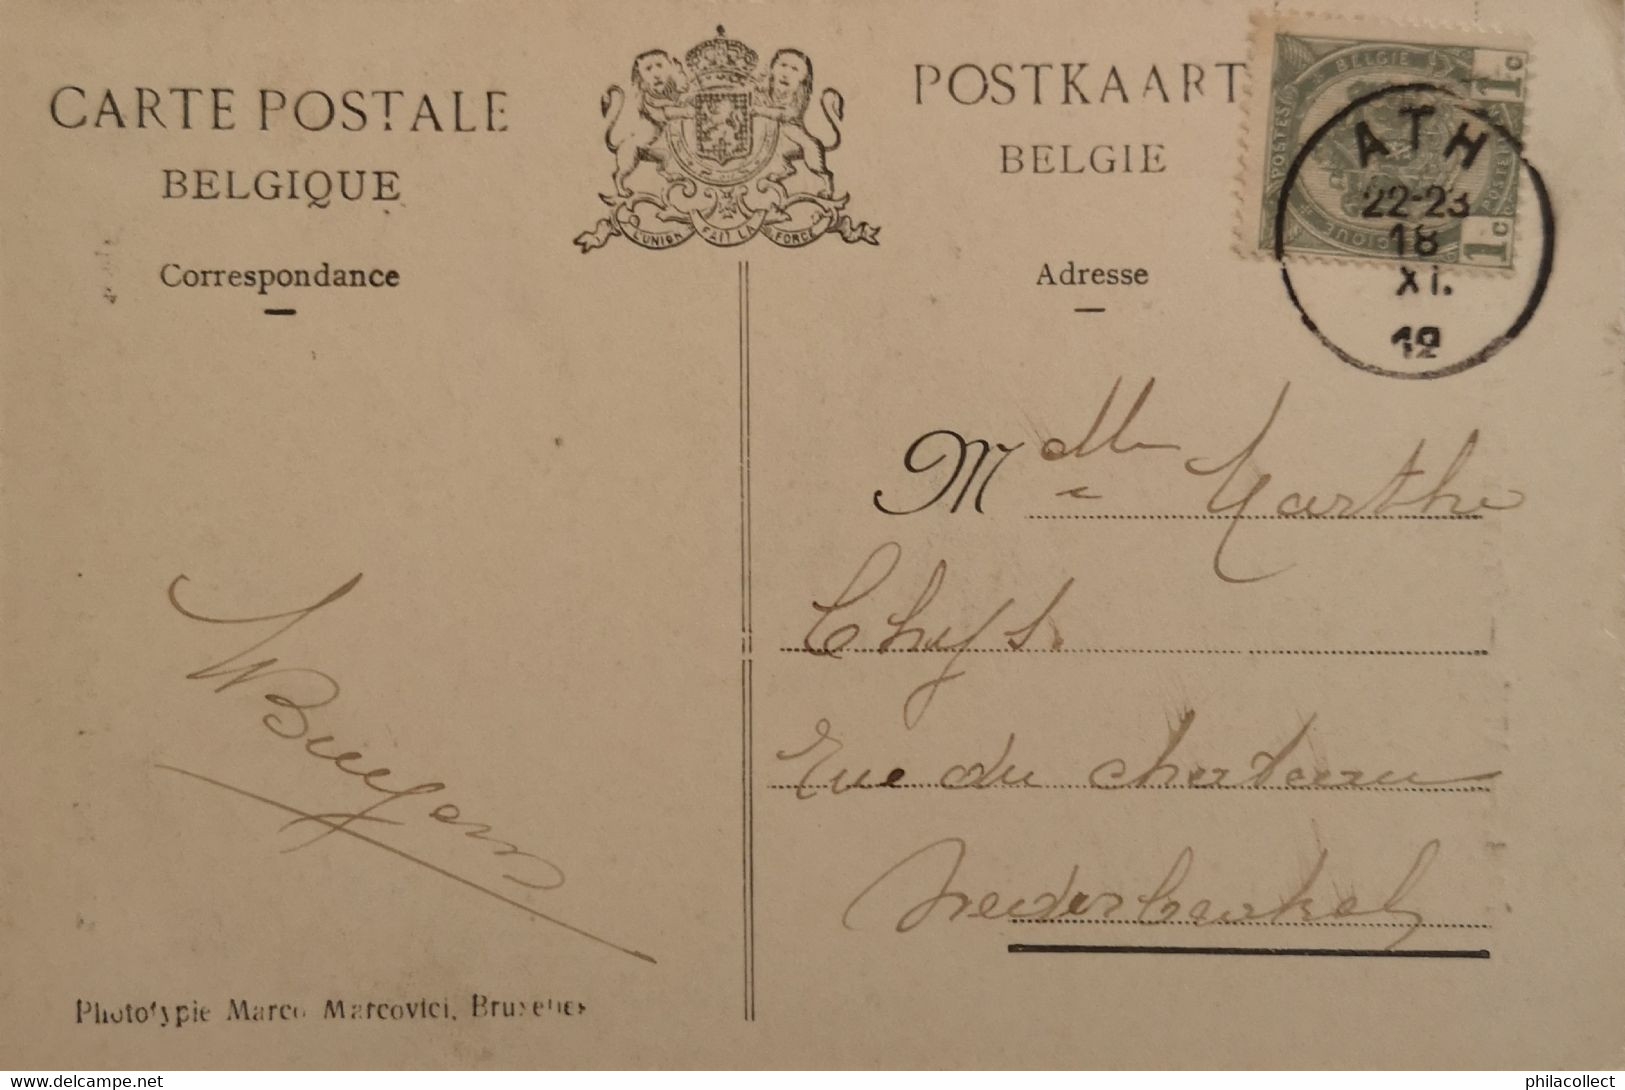 CARTE POSTALE
BELGIQUE
Correspondance
L'UNION FAIT LA FORCE
POSTKAART
BELGIE
Adresse
POSTES BELGIE
BELGIQUE POSTERIJEN
1c
1c
ATH
22-23
18
XI.
12
Mdlle Marthe
Thyst.
Rue du chateau
Nederbrakel
Phototypie Marco Marcovici, Bruxelles
https://www.delcampe.net
philacollect